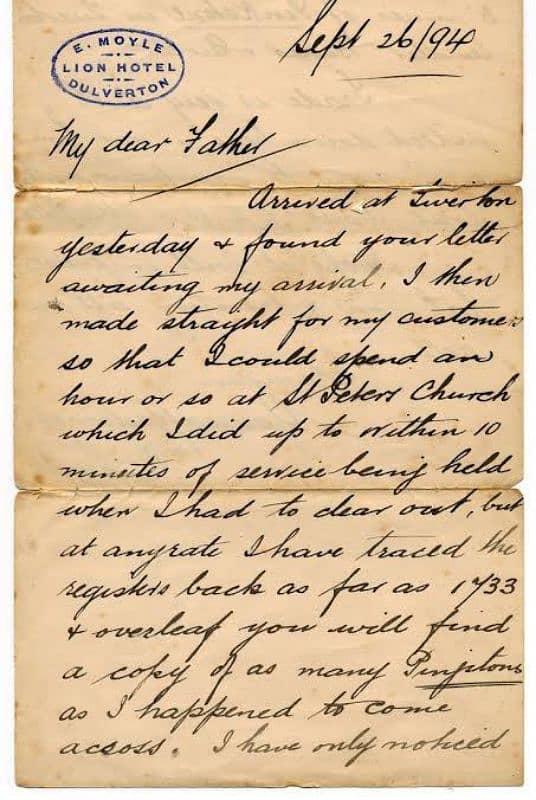 E. MOYLE
LION HOTEL
DULVERTON
Sept 26/94
My dear Father
Arrived at Tiverton
yesterday & found your letter
awaiting my arrival, I then
made straight for my customers
so that I could spend an
hour or so at St Peters Church
which I did up to within 10
minutes of service being held
when I had to clear out, but
at anyrate I have traced the
registers back as far as 1733
& overleaf you will find
a copy of as many Pingstons
as I happened to come
acsoss. I have only noticed